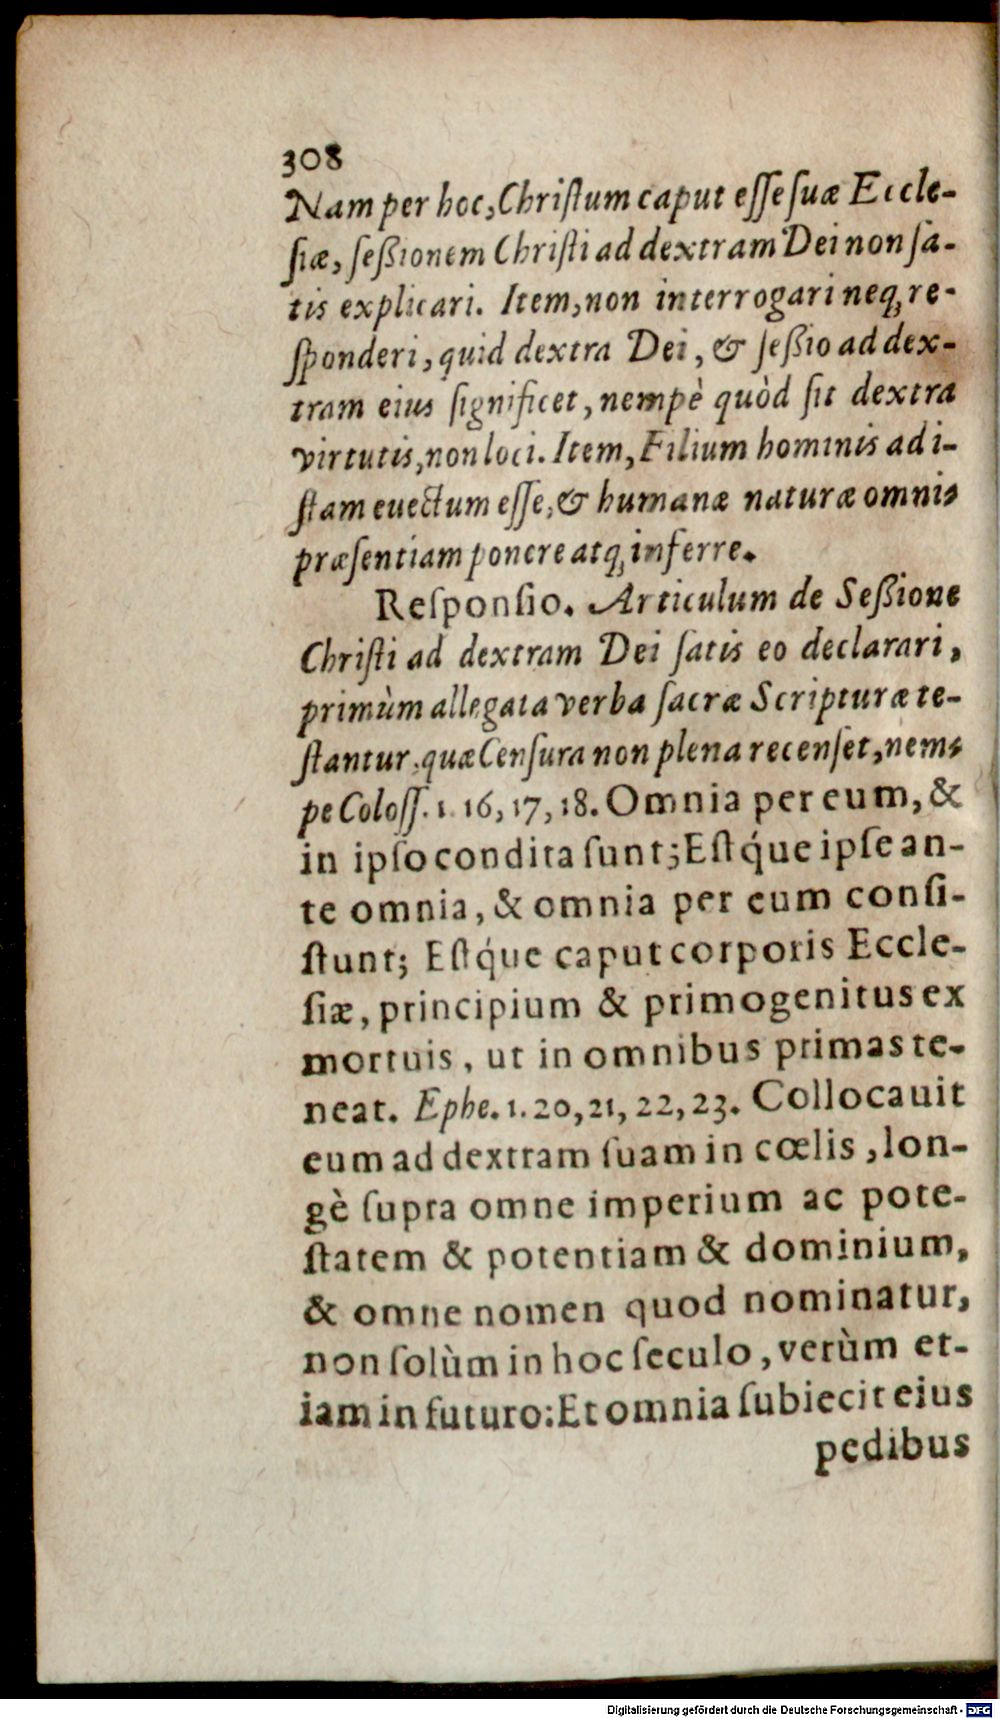 308
Nam per hoc, Chriſtum caput eſſe ſuæ Eccle-
ſiæ, ſeßionem Chriſti ad dextram Dei non ſa-
tis explicari. Item, non interrogari neq; re-
ſponderi, quid dextra Dei, & ſeßio ad dex-
tram eius ſignificet, nempè quòd ſit dextra
virtutis, non loci. Item, Filium hominis ad i-
ſtam euectum eſſe, & humanæ naturæ omnis
præſentiam ponere atq; inferre.
Reſponſio. Articulum de Seßione
Chriſti ad dextram Dei ſatis eo declarari,
primùm allegata verba ſacræ Scripturæ te-
ſtantur, quæ Cenſura non plena recenſet, nem-
pe Coloſſ. 1. 16, 17, 18. Omnia per eum, &
in ipſo condita ſunt; Eſtq́ue ipſe an-
te omnia, & omnia per eum conſi-
ſtunt; Eſtq́ue caput corporis Eccle-
ſiæ, principium & primogenitus ex
mortuis, ut in omnibus primas te-
neat. Ephe. 1. 20, 21, 22, 23. Collocauit
eum ad dextram ſuam in cœlis, lon-
gè ſupra omne imperium ac pote-
ſtatem & potentiam & dominium,
& omne nomen quod nominatur,
non ſolùm in hoc ſeculo, verùm et-
iam in futuro: Et omnia ſubiecit eius
pedibus
Digitalisierung gefördert durch die Deutsche Forschungsgemeinschaft - DFG